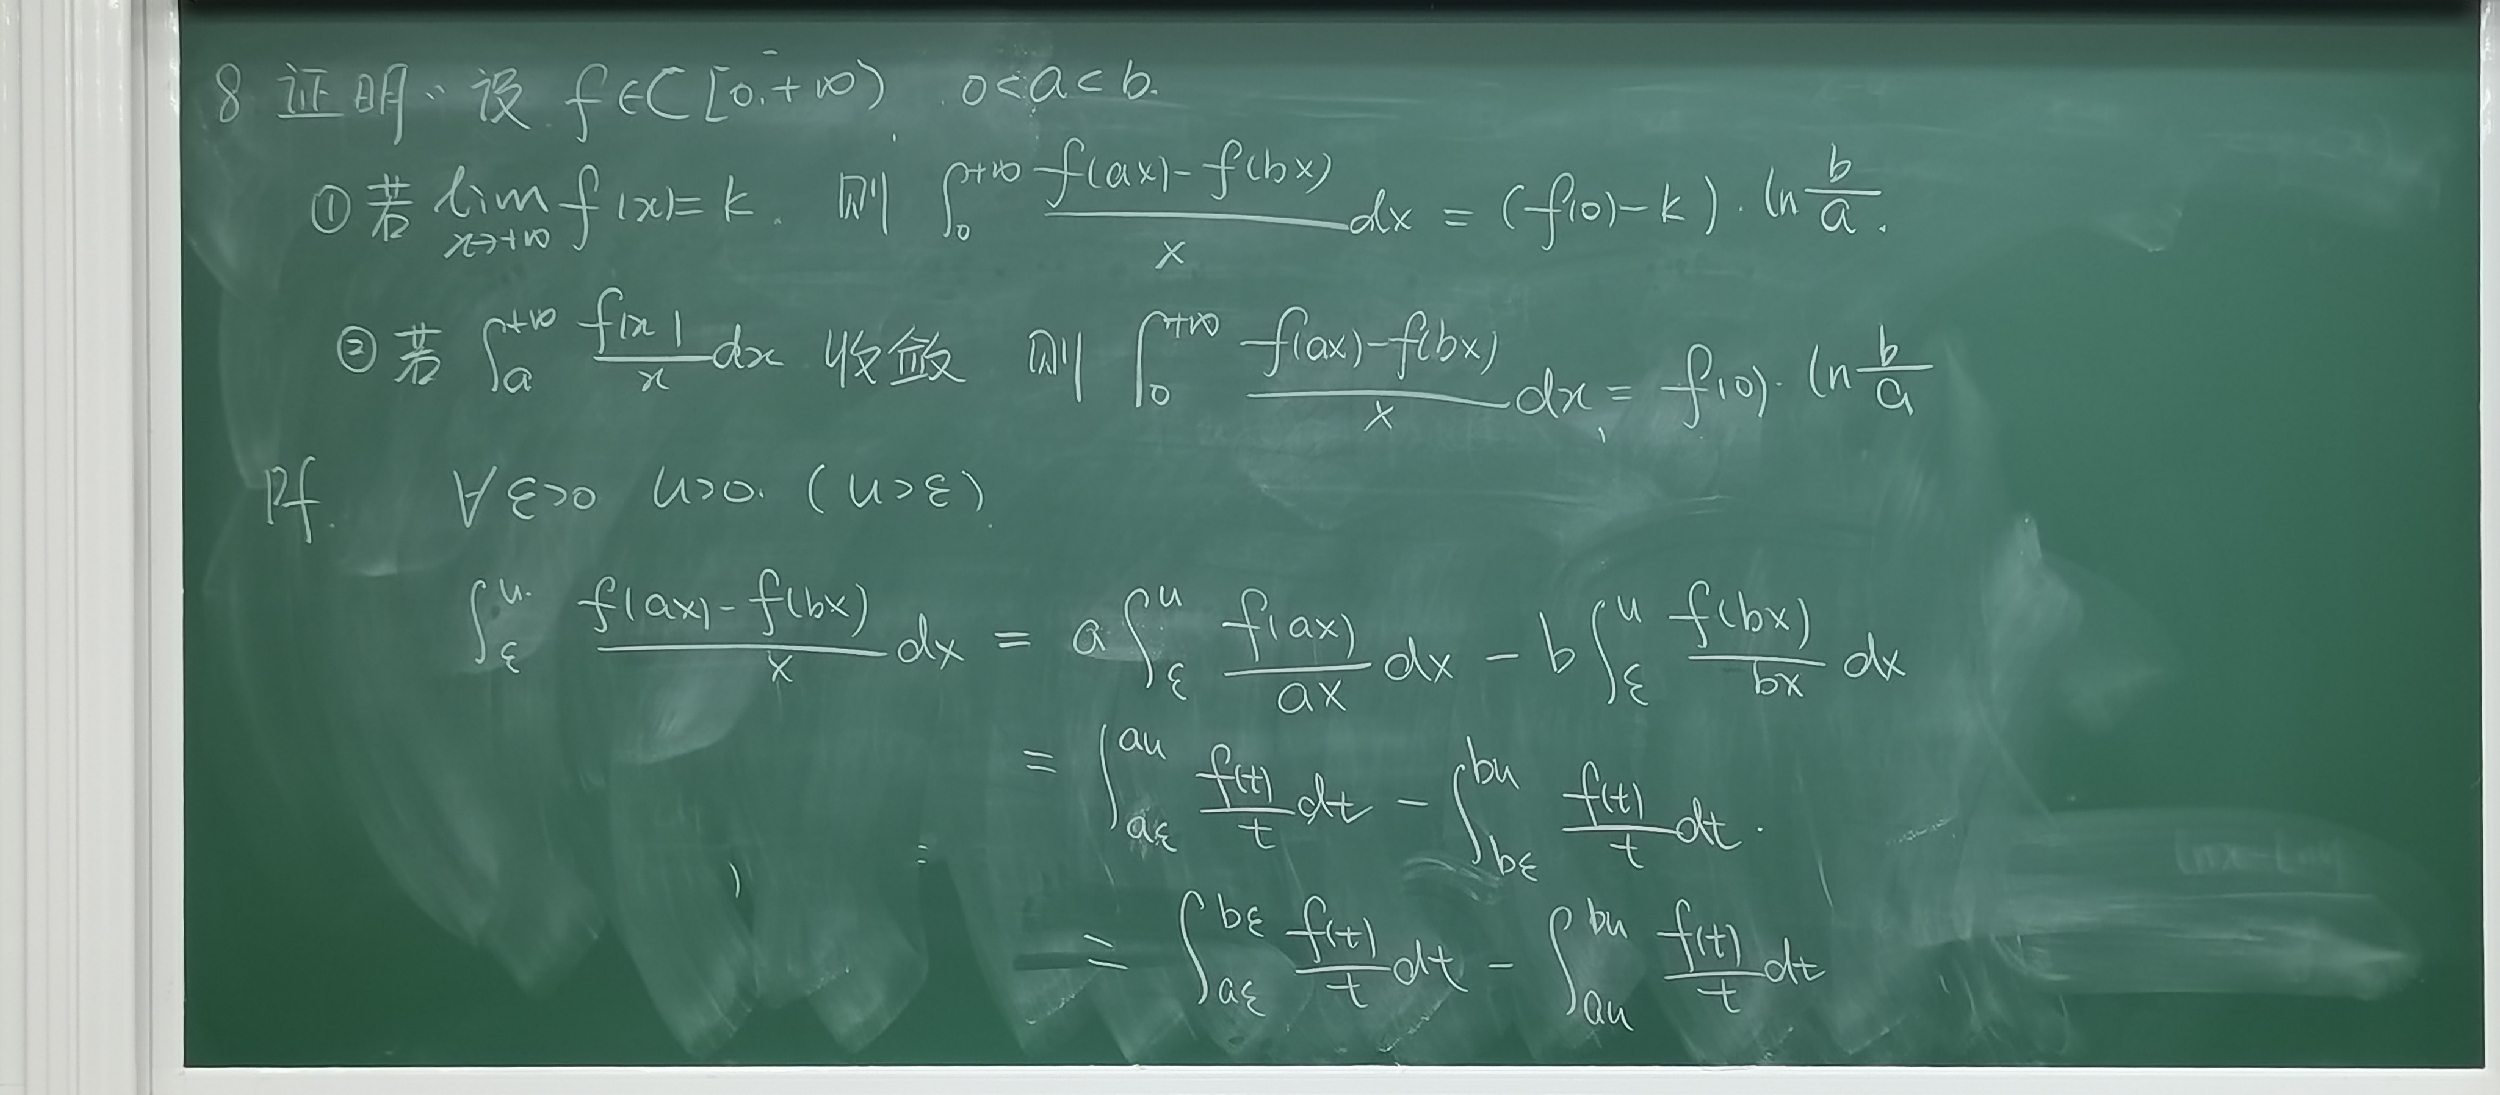 8 证明: 设 f∈C[0,+∞) 0<a<b.
① 若 lim_{x→+∞} f(x)=k. 则 ∫_0^{+∞} \frac{f(ax)-f(bx)}{x} dx = (f(0)-k)·ln\frac{b}{a}.
② 若 ∫_a^{+∞} \frac{f(x)}{x} dx 收敛 则 ∫_0^{+∞} \frac{f(ax)-f(bx)}{x} dx = f(0)·ln\frac{b}{a}
Pf. ∀ε>0 u>0. (u>ε).
∫_ε^u \frac{f(ax)-f(bx)}{x} dx = a∫_ε^u \frac{f(ax)}{ax} dx - b∫_ε^u \frac{f(bx)}{bx} dx
= ∫_{aε}^{au} \frac{f(t)}{t} dt - ∫_{bε}^{bu} \frac{f(t)}{t} dt.
= ∫_{aε}^{bε} \frac{f(t)}{t} dt - ∫_{au}^{bu} \frac{f(t)}{t} dt